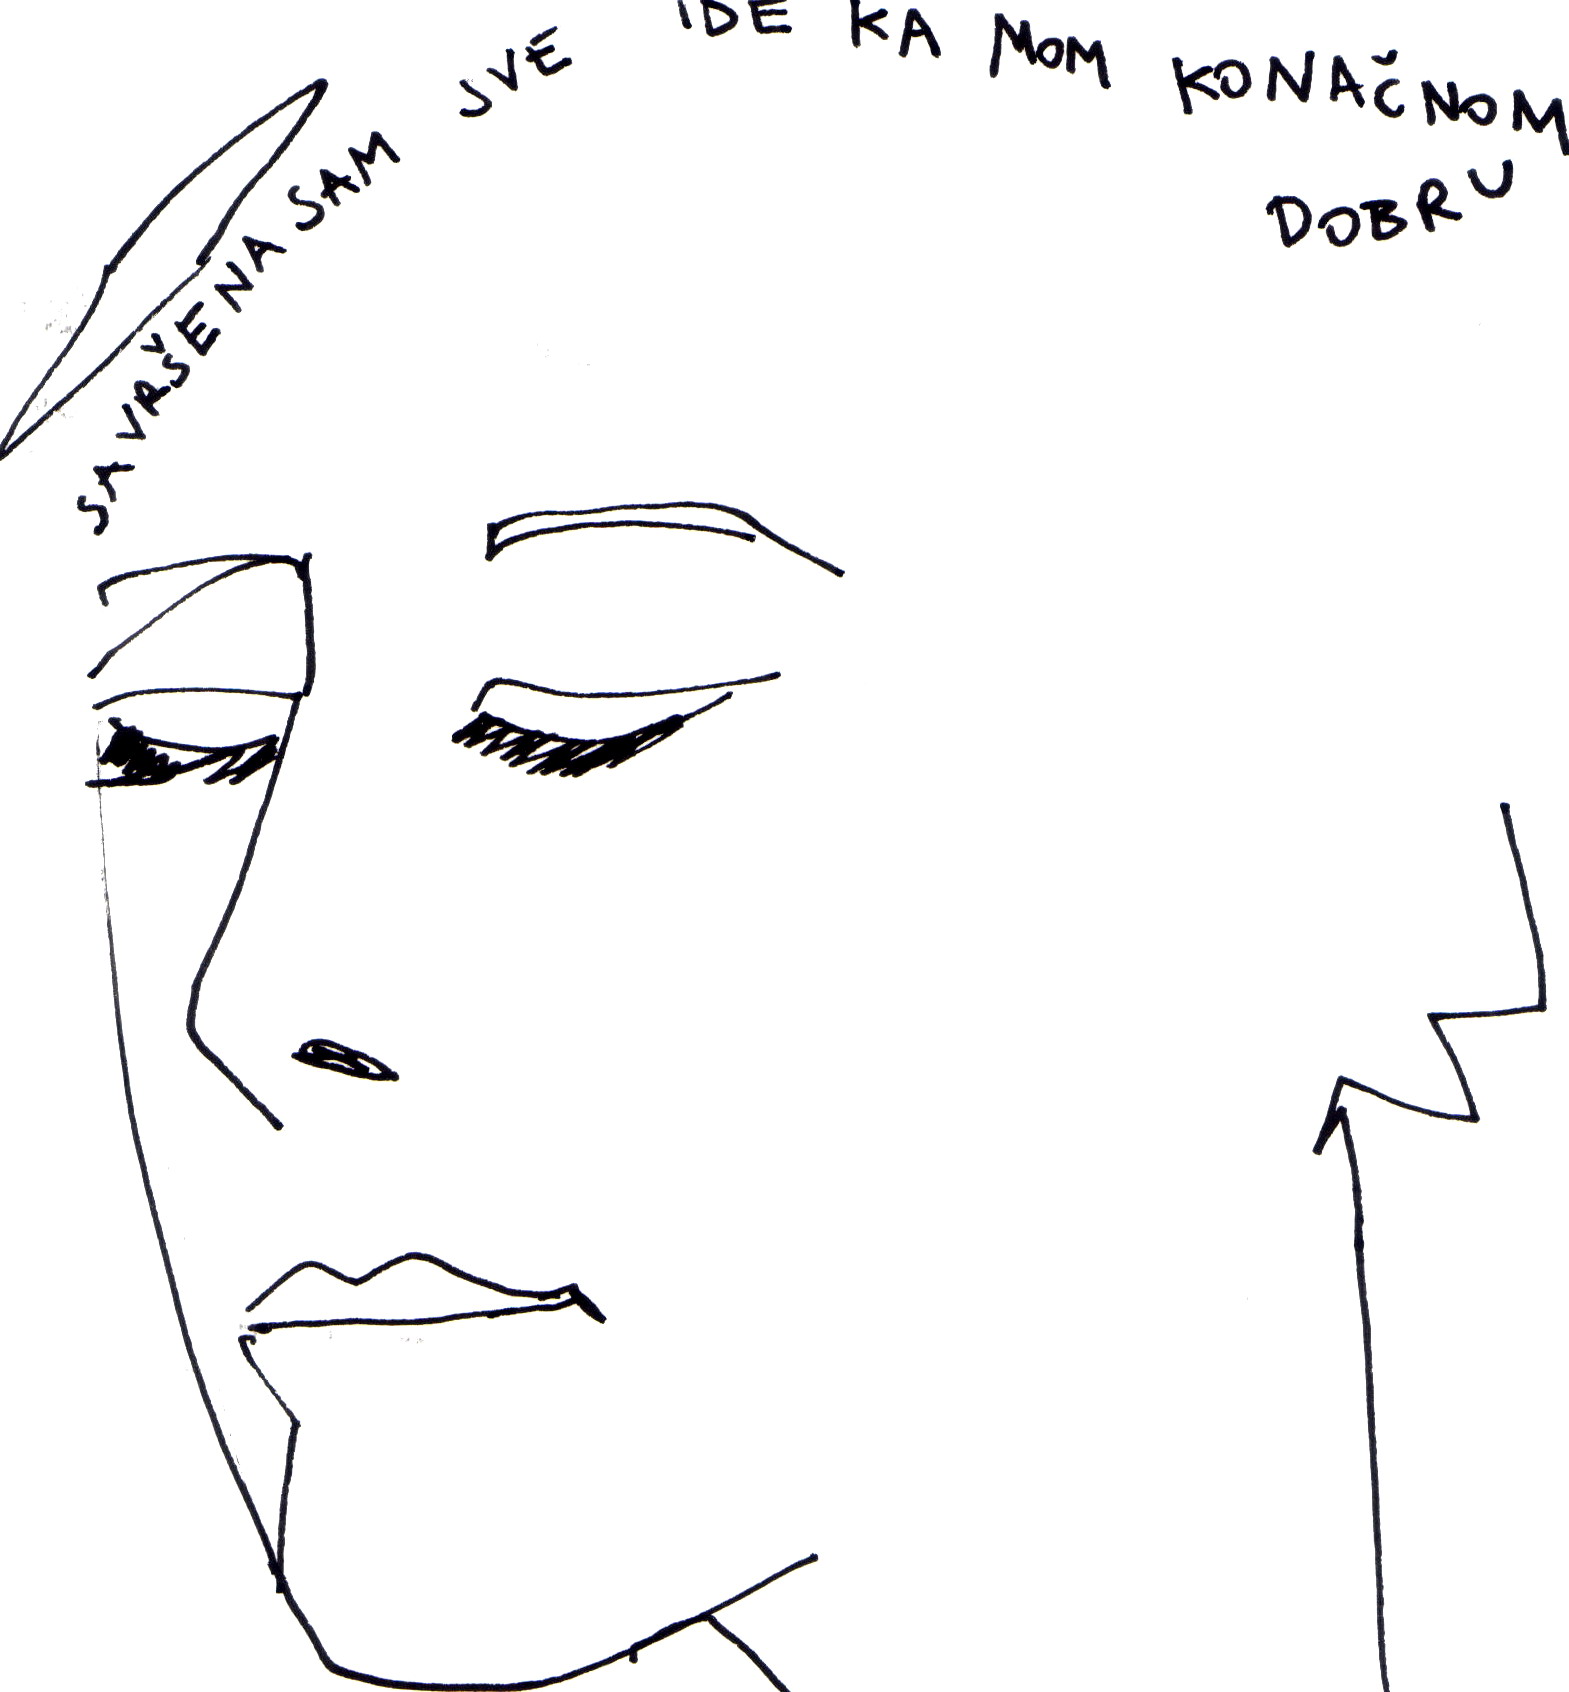 SAVRŠENA SAM SVE IDE KA MOM KONAČNOM
DOBRU